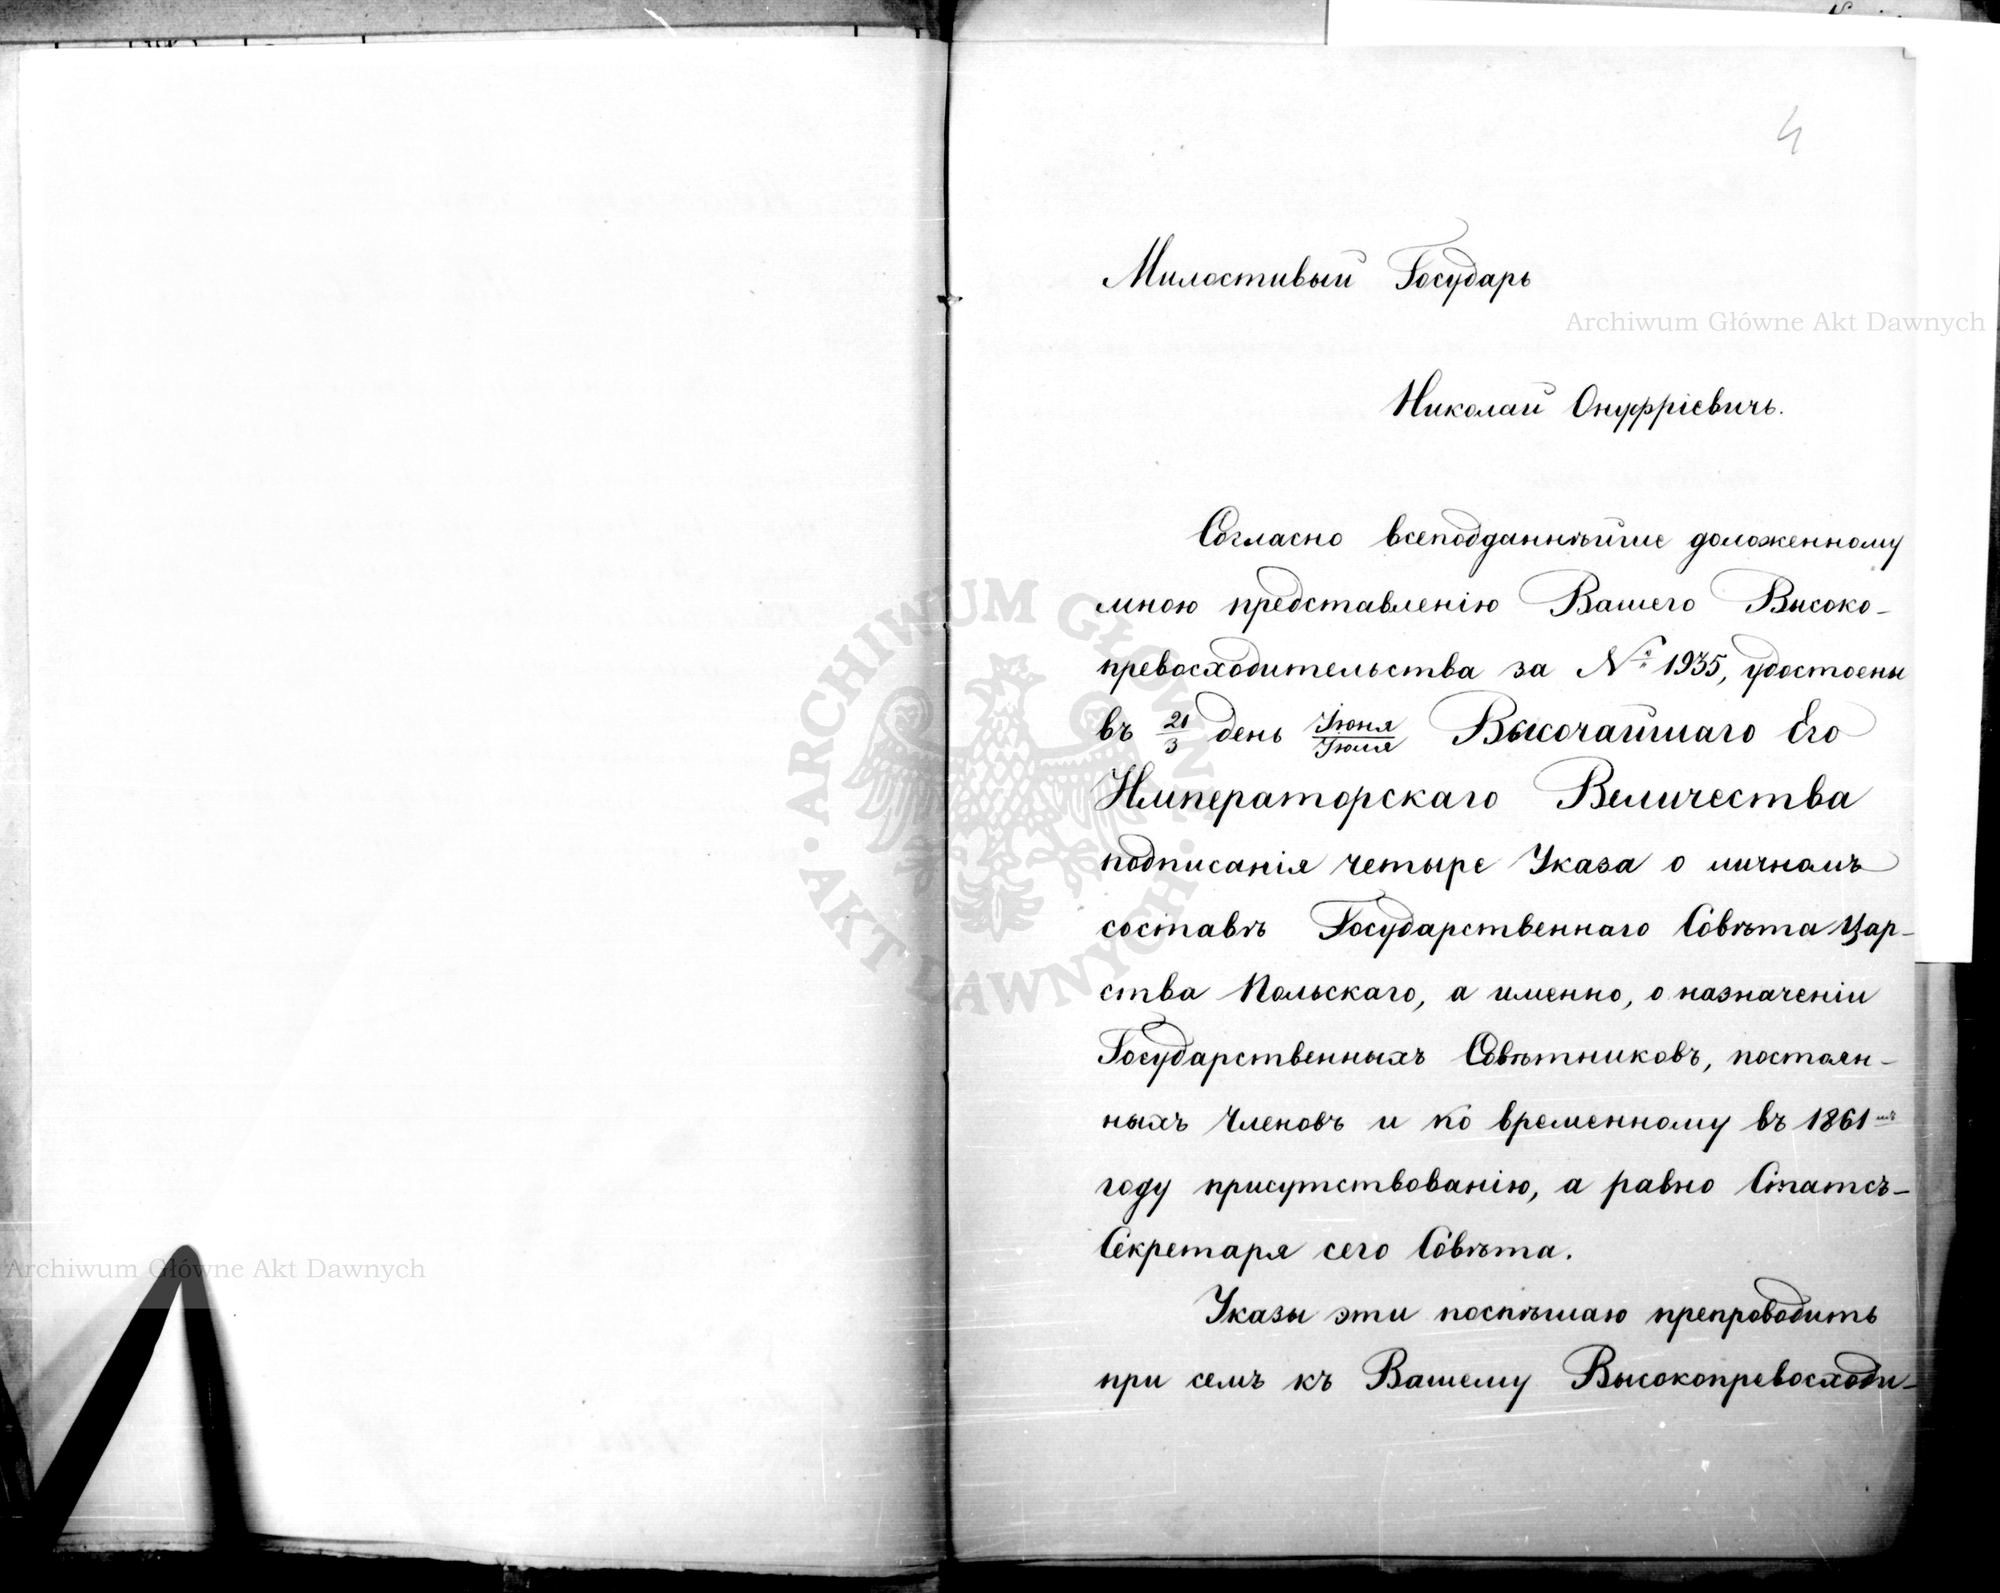 4
Милостивый Государь
Archiwum Główne Akt Dawnych
Николай Онуфріевичъ.
Согласно всеподданнѣйше доложенному
мною представленію Вашего Высоко-
превосходительства за № 1935, удостоены
въ 21/3 день Іюня/Іюля Высочайшаго Его
Императорскаго Величества
подписанія четыре Указа о личномъ
составѣ Государственнаго Совѣта Цар-
ства Польскаго, а именно, о назначеніи
Государственныхъ Совѣтниковъ, постоян-
ныхъ Членовъ и ко временному въ 1861мъ
году присутствованію, а равно Статсъ-
Секретаря сего Совѣта.
Указы эти поспѣшаю препроводить
при семъ къ Вашему Высокопревосходи-
ARCHIWUM GŁÓWNE · AKT DAWNYCH ·
Archiwum Główne Akt Dawnych